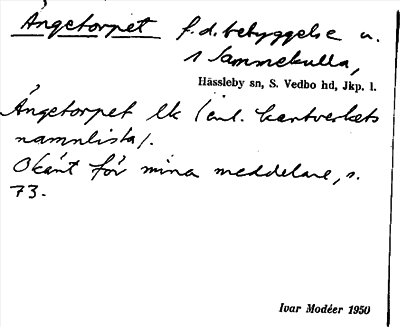 Ängetorpet f.d. bebyggelse u.
s Sammekulla,
Hässleby sn, S. Vedbo hd, Jkp. l.
Ängetorpet lk (enl. kartverkets
namnlista).
Okänt för mina meddelare, s.
73.
Ivar Modéer 1950